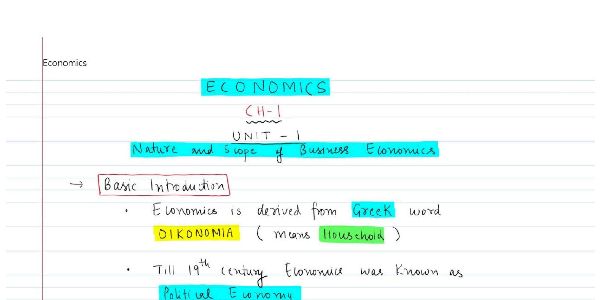 Economics
ECONOMICS
CH-1
UNIT - 1
Nature and Scope of Business Economics
→ Basic Introduction
• Economics is derived from Greek word
OIKONOMIA ( means Household )
• Till 19th century Economics was known as
Political Economy